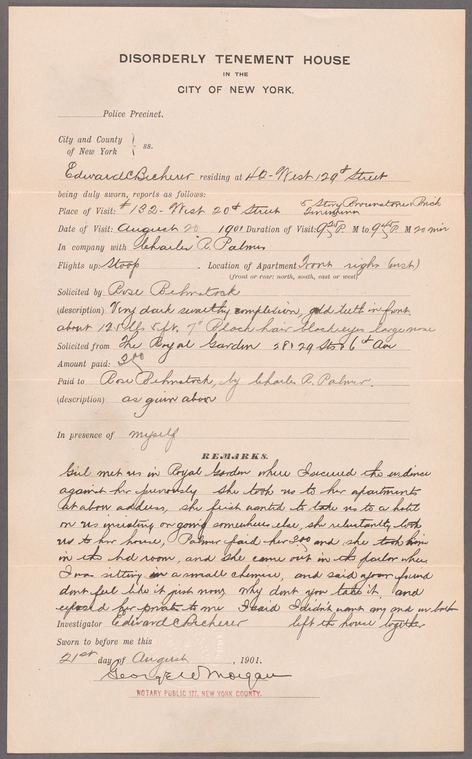 DISORDERLY TENEMENT HOUSE
IN THE
CITY OF NEW YORK.
Police Precinct.
City and County
of New York } ss.
Edward C Becherer residing at 40 West 129th Street
being duly sworn, reports as follows:
Place of Visit: #132 West 20th Street 5 Story Brownstone & Brick
Date of Visit: August 20 1901 Duration of Visit: P. M to P. M 20 min
In company with Charles A Palmer
Flights up: Stoop . Location of Apartment Front right (east)
(front or rear: north, south, east or west)
Solicited by Rose Behnstock
(description) Very dark swarthy complexion, gold teeth in front
about 125 lbs 5 ft. 7" Black hair black eyes large nose
Solicited from The Royal Garden 28 & 29 St & 6th Ave
Amount paid: 2.00
Paid to Rose Behnstock, by Charles A. Palmer.
(description) as given above
In presence of myself
REMARKS.
Girl met us in Royal Garden where I secured the evidence
against her previously She took us to her apartments
at above address, she first wanted to take us to a hotel
on us insisting on going somewhere else, she reluctantly took
us to her house, Palmer paid her 2.00 and she took him
in the bed room, and she came out in the parlor where
I was sitting in a small chemise, and said your friend
dont feel like it just now, Why dont you take it, and
exposed her private to me I said I didnt want any and we both
Investigator Edward C Becherer left the house together
Sworn to before me this
21st day of August , 1901.
George W Morgan
NOTARY PUBLIC 177, NEW YORK COUNTY.